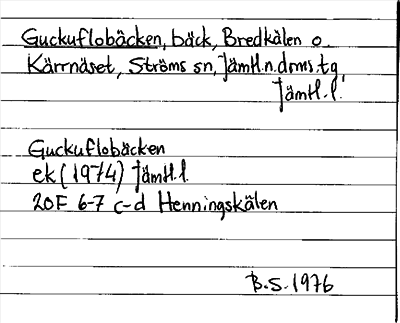 Guckuflobäcken, bäck, Bredkälen o.
Kärrnäset, Ströms sn, Jämtl.n.dms.tg,
Jämtl.l.
Guckuflobäcken
ek (1974) Jämtl.l.
20F 6-7 c-d Henningskälen
B.S. 1976